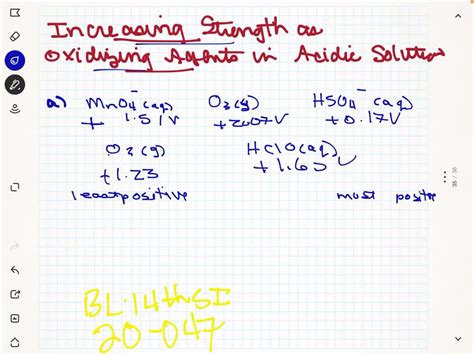 Increasing Strength as
Oxidizing Agents in Acidic Solution
a) MnO4⁻(aq) O3(g) HSO4⁻(aq)
+ 1.51V +2.07V +0.17V
O2(g) HClO(aq)
+1.23 +1.63 V
least positive most positive
BL.14thSI
20-047